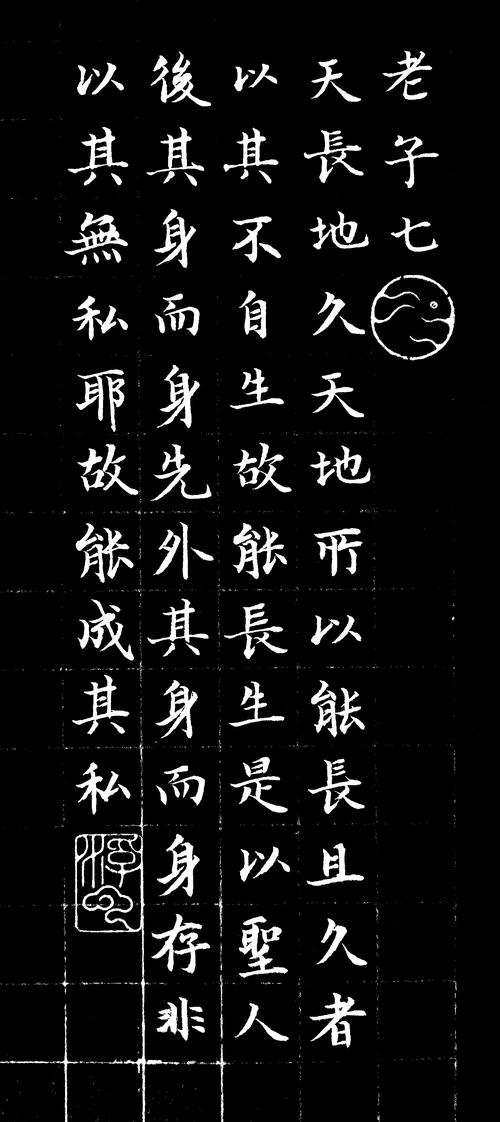 老子七
天長地久天地所以能長且久者
以其不自生故能長生是以聖人
後其身而身先外其身而身存非
以其無私耶故能成其私